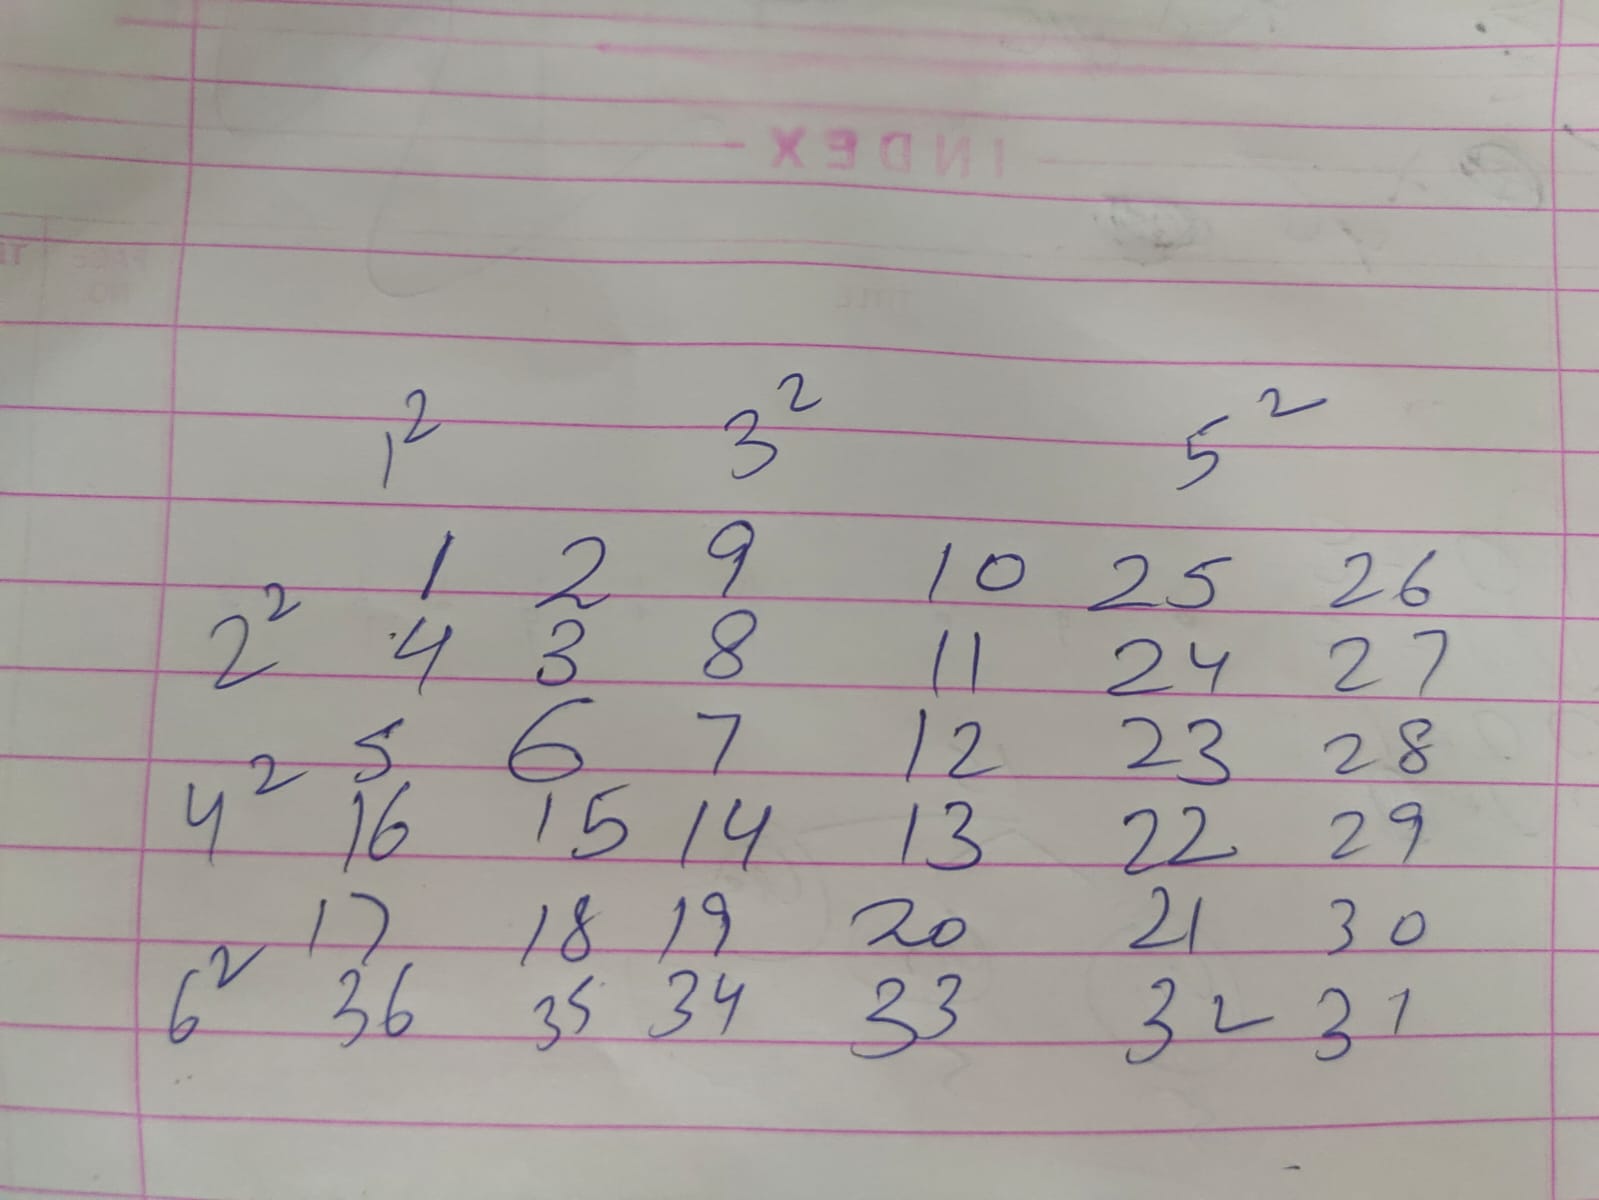 INDEX
PAGE NO.
TITLE
1² 3² 5²
1 2 9 10 25 26
2² 4 3 8 11 24 27
5 6 7 12 23 28
4² 16 15 14 13 22 29
17 18 19 20 21 30
6² 36 35 34 33 32 31